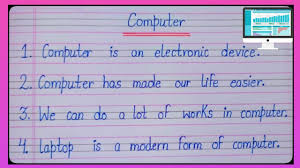 Computer
1. Computer is an electronic device.
2. Computer has made our life easier.
3. We can do a lot of works in computer.
4. laptop is a modern form of computer.